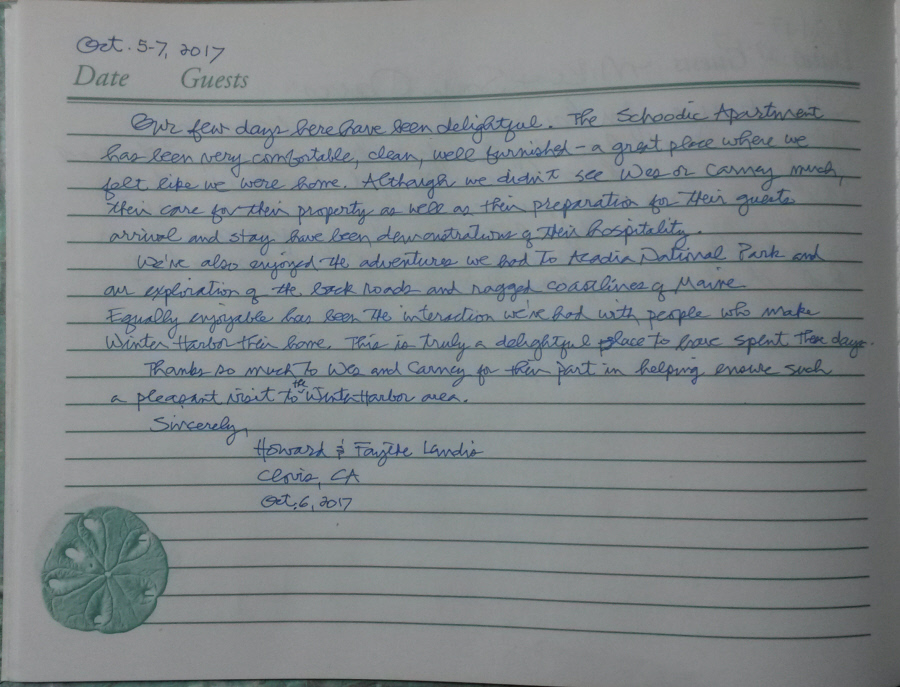 Oct. 5-7, 2017
Date Guests
Our few days here have been delightful. The Schoodic Apartment
has been very comfortable, clean, well furnished - a great place where we
felt like we were home. Although we didn't see Wes or Carney much,
their care for their property as well as their preparation for their guests
arrival and stay have been demonstrations of their hospitality.
We've also enjoyed the adventures we had to Acadia National Park and
our exploration of the back roads and ragged coastlines of Maine.
Equally enjoyable has been the interaction we've had with people who make
Winter Harbor their home. This is truly a delightful place to have spent these days.
Thanks so much to Wes and Carney for their part in helping ensure such
a pleasant visit to the Winter Harbor area.
Sincerely,
Howard & Faythe Landis
Clovis, CA
Oct. 6, 2017